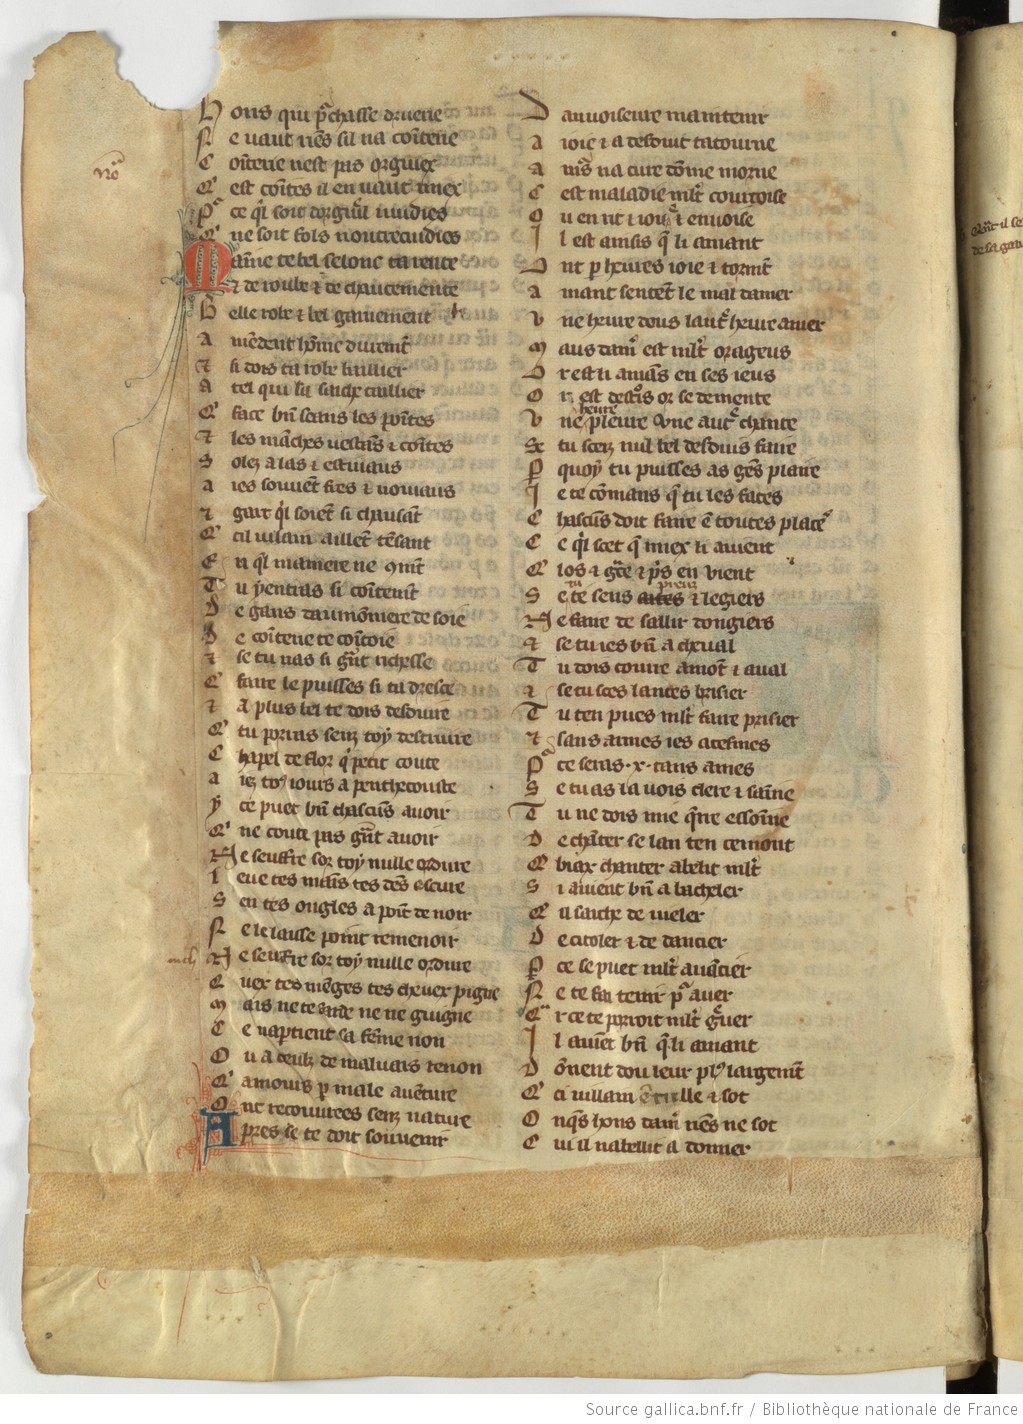 Hons qui pꝛchasse druerie
Ne uaut riēs sil na cōiterie
Cointerie nest pas orguiex
Q̄ est cōites il en uaut miex
Pꝛ ce qͥl soit dorguil uuidies
Qͥ ne soit fols noutrecuidies
Maīne te bel selonc ta rente
Et de robe ⁊ de chaucemente
Belle robe ⁊ bel garnement
Amēdent hōme duremt̄
⁊ si dois ta robe baillier
A tel qui sa sache taillier
Qͥ face bn̄ seans les pointes
⁊ les māches uestās ⁊ cointes
Solez a las ⁊ estiuaus
Aies souuēt fres ⁊ nouuiaus
⁊ gart qͥl soiēt si chausāt
Qͥ cil uilain aillēt tēsant
En qͥl maniere
Tu ⁊ entras
De gans daumoniere de soie
⁊ de cointerie te cointoie
⁊ se tu nas si gͣnt richesse
Qͥ faire le puisses si ta dresce
⁊ Al plus bel te dois desduire
Qͥ tu porras senz toy destruire
Chapel de flor qͥ petit couste
A penthecouste
Ce puet bn̄ chascuns auoir
Qͥ ne couste pas gͣnt auoir
Ne seuffre sor toy nulle ordure
Leue tes mains tes dēs escure
Sen tes ongles a point de noir
Ne le laisse point remenoir
Ne seuffre sor toy nulle ordure
tes cheuex pigne
Mais ne te farde ne ne guigne
Ce naptient sa feme non
Ou a ceulz de maluais renon
Qͥ amours ꝑ male auēture
Ont recouurees senz nature
Apres se te doit souuenir
Danuoiseure maintenir
A ioie ⁊ a desduit tatourne
Amꝛs na cure dōme morne
Cest maladie ml̄t courtoise
Ou en rit ⁊ ioue ⁊ enuoise
Il est ainsis qͥ li amant
Ont ꝑ heures ioie ⁊ tormt̄
Amant sentent le mal damer
Vne heure dous lautͤ heure amer
Maus dam̄ est ml̄t orageus
Or est li amās en ses ieus
Or est destꝛs or se demente
heure
Vne pleure ⁊ vne autͤ chante
Se tu scez nul bel desduis faire
Par quoy tu puisses as gēs plaire
Ie te cōmans qͥ tu les faces
Chascuns doit faire ē toutes places
Ce qͥl scet qͥ miex li auient
Qͥ los ⁊ gͣce ⁊ pͥs en vient
tu preuz
Se te sens ⁊ legiers
Ne faire de saillir dongiers
⁊ se tu ies bn̄ a cheual
Tu dois courre amont ⁊ aual
⁊ se tu sces lances brisier
Tu ten pues ml̄t faire prisier
⁊ sans armes ies acesmes
Pꝛ ce seras .x. tans ames
Se tu as la uois clere ⁊ saine
Tu ne dois mie qͥrre essoine
De chāter se lan ten cemont
Qͥ biax chanter abelit ml̄t
Si auient bn̄ a bacheler
Qͥl sache de uieler
De citoler ⁊ de dancier
Pꝛ ce se puet ml̄t auācier
Ne te fai tenir pꝛ auer
Qͥr ce te porroit ml̄t gͣuer
Il auiēt bn̄ qͥ li amant
Donent dou leur plꝰ largemt̄
Qͥ ci uillain ⁊ sot
Onqͥs hons dam̄ riēs ne sot
Cui il nabellit a donner
Source gallica.bnf.fr / Bibliothèque nationale de France